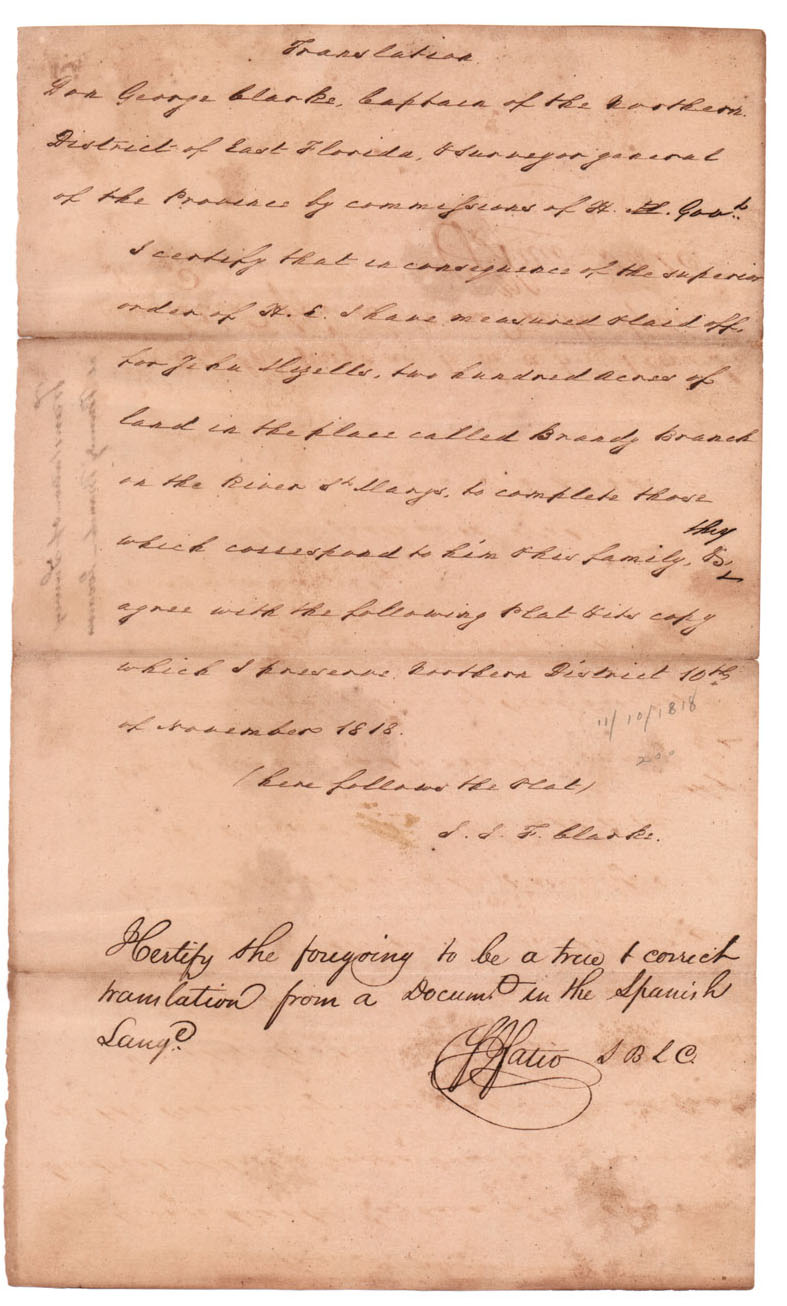 Translation
Don George Clarke, Captain of the Northern
District of East Florida, & Surveyor general
of the Province by commissions of H. Govt.
I certify that in consequence of the superior
order of H. E. I have measured & laid off
for John Mizells, two hundred acres of
land in the place called Brandy Branch
on the River St. Marys, to complete those
which correspond to him & his family, they &
agree with the following Plat & its copy
which I preserve. Northern District 10th
of November 1818.
11/10/1818
200
(here follows the Plat)
Clarke.
I Certify the foregoing to be a true & correct
translation from a Documt. in the Spanish
Lange.
Fatio S B L C.